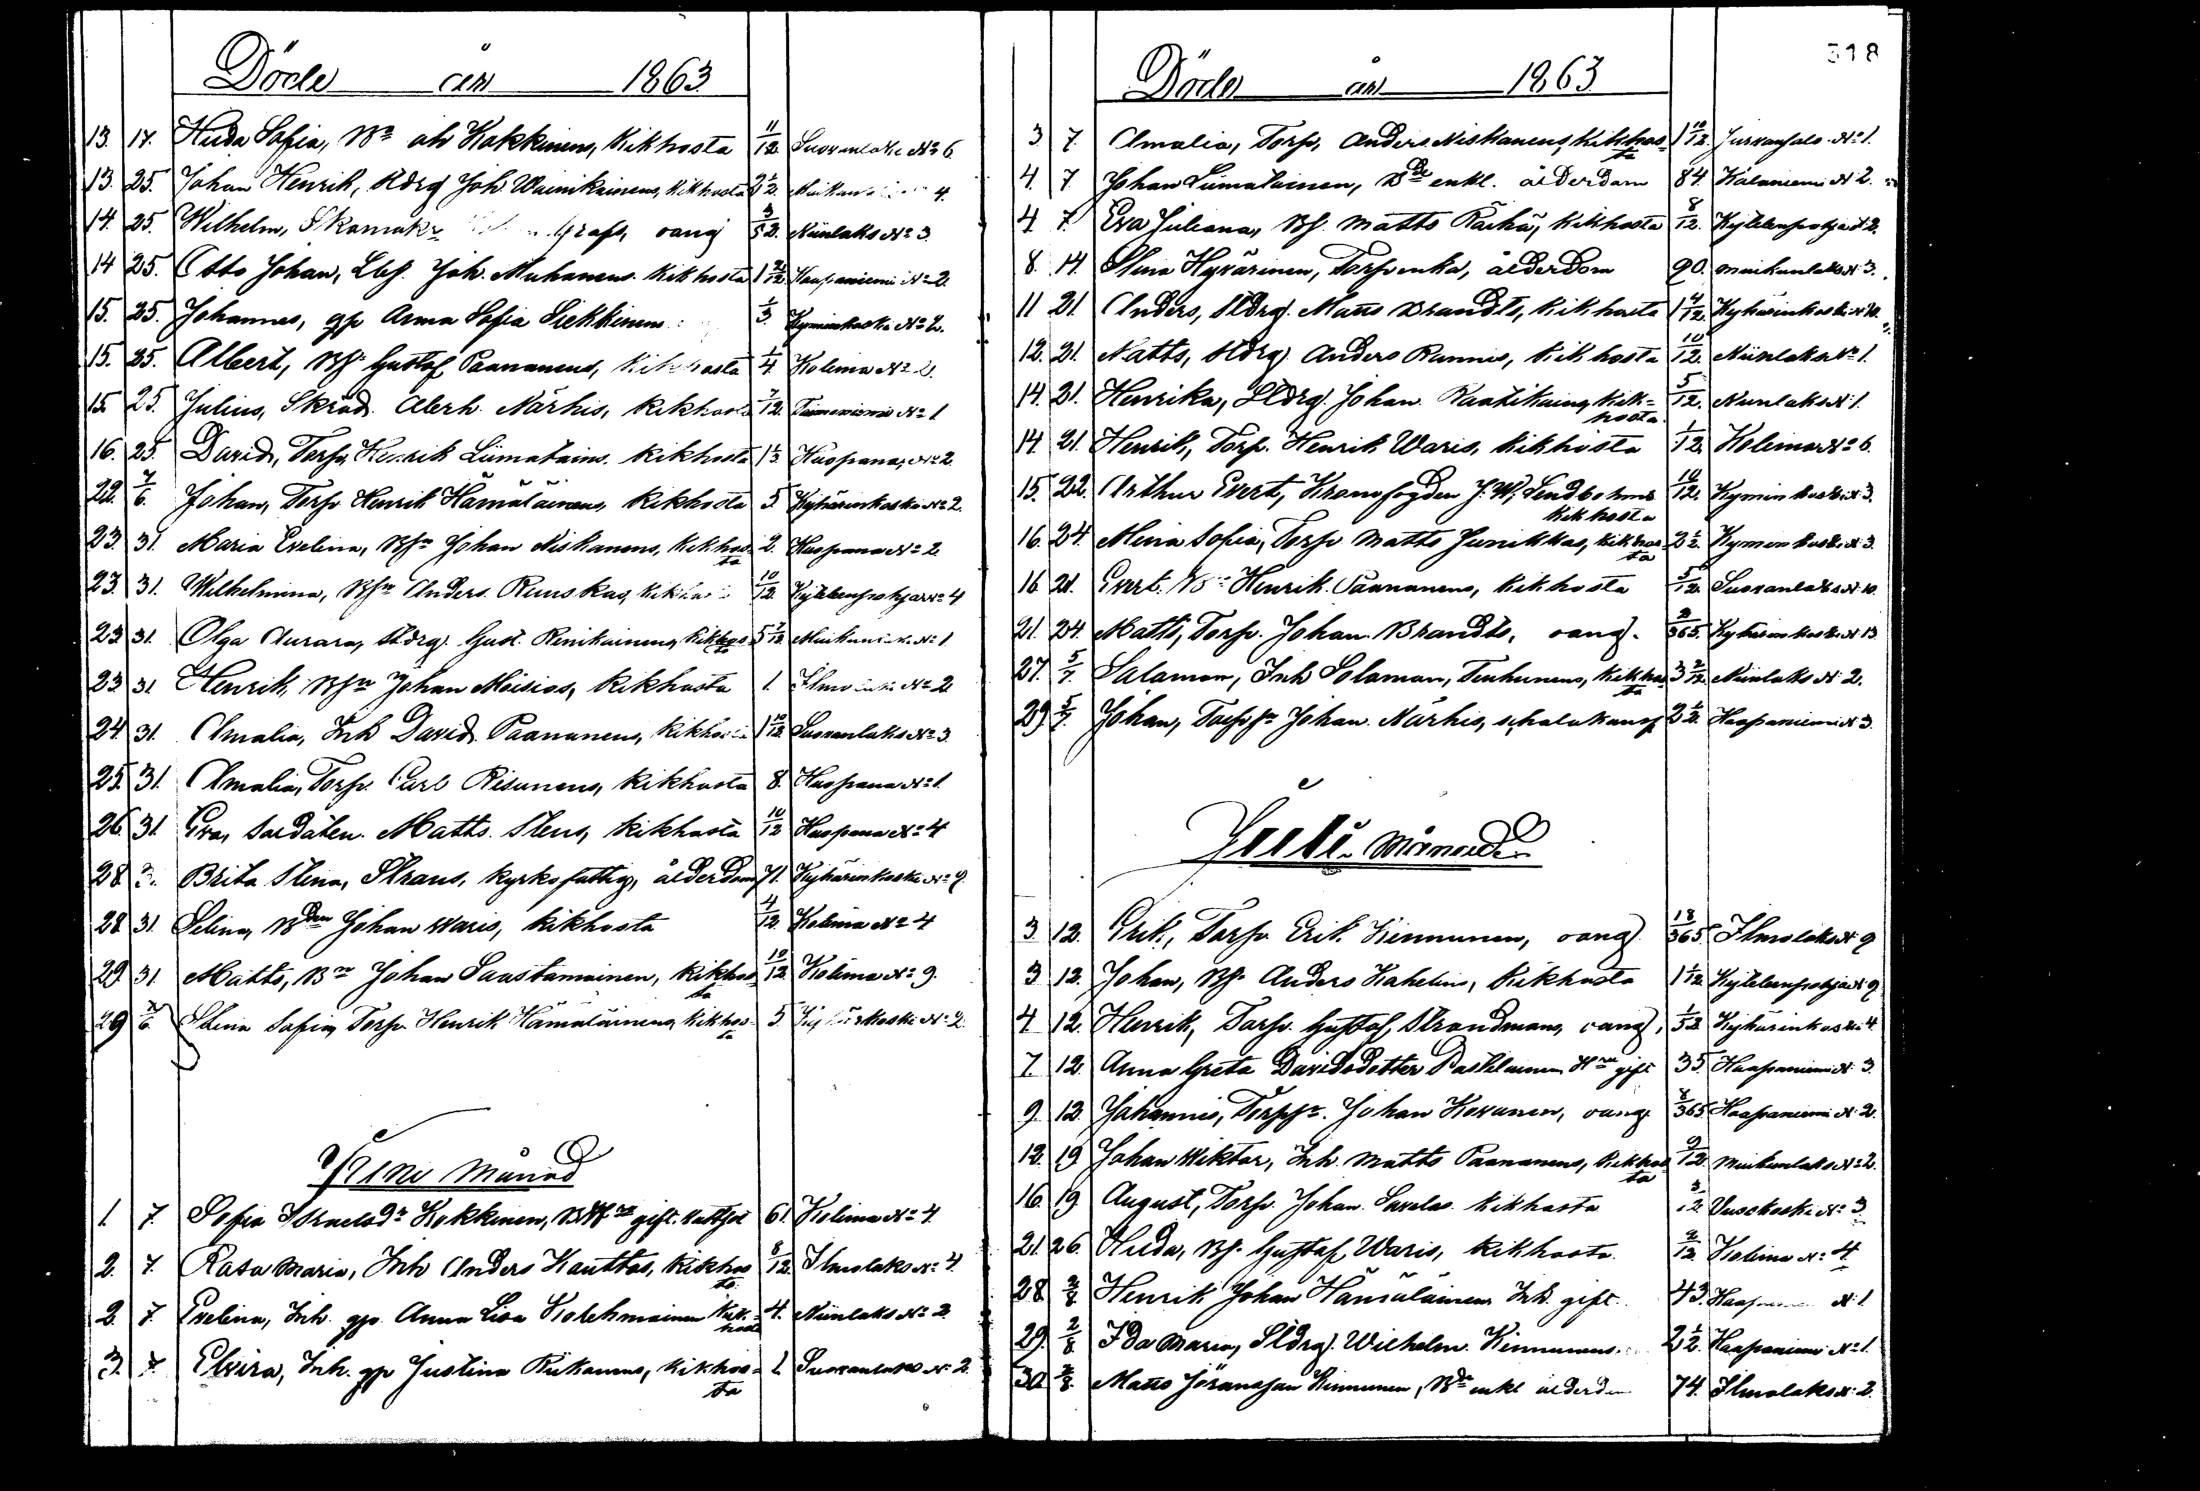 Döde år 1863
13. 17. Hilda Sofia, Bn ah Kokkinens, Kikhosta 11/12 Suovanlaks No 6
13. 25. Johan Henrik, Ldrg Joh Wainikainens, Kikhosta 2 1/2 Muikun 4.
14. 25. Wilhelm, Skomak Grafs, oang 3/52. Niinlaks No 3.
14 25. Otto Johan, Lbf. Joh. Muhanens Kikhosta 1 Haapaniemi No 2.
15. 25. Johannes, gp Anna Sofia Siekkinens 1/3 Kyminkoski No 2.
15. 25. Albert, Bf Gustaf Paananens, Kikhosta 1/4 Kolima No 2.
15 25. Julius, Skräd. Abrh. Närhis, Kikhosta 7/12. No 1
16. 25. David, Torp, Henrik Liimatains. Kikhosta 1 1/3 Huopana, No 2.
22. 7/6. Johan, Torp Henrik Hämäläinens, Kikhosta 5 Kyhärinkoski No 2.
23. 31. Maria Evelina, Bfn Johan Niskanens, Kikhosta 2. Huopana No 2
23. 31. Wilhelmina, Bfn Anders Ruuskas, Kikhosta 10/12. Kytelenpohja No 4
23 31. Olga Aurora, Sldrg. Gust. Rinikainens, Kikhosta 5 7/12 No 1
23 31 Henrik, Bfn Johan Moisios, Kikhosta 1. Ilmolaks No 2
24. 31. Amalia, Inh David Paananens, Kikhosta 1 10/12 Suovanlaks No 3.
25. 31. Amalia, Torp. Carl Risanens, Kikhosta 8. Huopana No 1
26. 31. Eva, Soldaten. Matts. Stens, Kikhosta 10/12 Huopana No 4
28 Brita Stina, Straus, kyrkofattig, ålderdom 71. Kyhärinkoski No 9.
28 31. Selina, Bden Johan Waris, Kikhosta 4/12. Kolima No 4
29 31 Matts, Bn Johan Saastamoinen, Kikhosta 10/12 Kolima No 9.
29 7/6. Stina Sofia, Torp. Henrik Hämäläinens, Kikhosta 5. Kyhärkoski No 2.
Juni Månad
1. 7. Sofia Israelsdr Kokkinen, gift. Vattsot 61. Kolima No 4.
2. 7. Rosa Maria, Inh Anders Kauttos, Kikhosta 8/12. Ilmolaks No 4.
2. 7. Evelina, Inh. gp Anna Lisa Korehmainen Kikhosta 4. Niinlaks No 2
3. 7. Elvira, Inh. gp Justina Riikonens, Kikhosta 1. Suovanlaks No 2.
318
Döde år 1863
3 7. Amalia, Torp. Anders Niskanens, Kikhosta 1 10/12. Jurvansalo No 1.
4. 7. Johan Liimatainen, Bde enkl. ålderdom 84. Kalaniemi No 2.
4 7. Eva Juliana, Bf. Matts Räihä, Kikhosta 8/12. Kytelenpohja No 2.
8. 14. Stina Hyvärinen, Torpenka, ålderdom 90. Muikunlaks No 3.
11 21. Anders, Sldrg. Matts Brandts, Kikhosta 1 4/12. Kyhärinkoski No 10.
12. 21. Matts, Sldrg. Anders Runnis, Kikhosta 10/12. Niinlaks No 1.
14. 21. Henrika, Sldrg. Johan Raatikains, Kikhosta 5/12. Niinlaks No 1.
14. 21. Henrik, Torp. Henrik Waris, Kikhosta 1/12. Kolima No 6.
15. 22. Arthur Evert, Kronofogden J. W. Lindbohms Kikhosta 10/12. Kyminkoski No 3.
16. 24. Mina Sofia, Torp Matts Junikkas, Kikhosta 2 1/2. Kyminkoski No 3.
16 21. Evert, Bn Henrik Paananens, Kikhosta 5/12. Suovanlaks No 10.
21. 24. Matts, Torp. Johan Brandts, oang. 2/365. Kyhärinkoski No 13
27. 5/7. Salamon, Inh Solomon, Tenhunens, Kikhosta 3 2/12. Niinlaks No 2.
29 5/7. Johan, Torpfn Johan Närhis, schalakansf 2 1/2. Haapaniemi No 3.
Juli Månad
3 12. Erik, Torp. Erik Kinnunen, oang. 18/365. Ilmolaks No 9
3 12. Johan, Bf. Anders Kahelins, Kikhosta 1 1/12 Kytelenpohja No 9.
4 12. Henrik, Torp. Gustaf Strandmans, oang. 1/52 Kyhärinkoski 4.
7. 12. Anna Greta Davidsdotter Paskilainen, gift 35. Haapaniemi No 3.
9 12. Johannis, Torpfn. Johan Kovanen, oang. 8/365 Haapaniemi No 2.
12. 19 Johan Wiktor, Inh. Matts Paananens, Kikhosta 9/12. Muikunlaks No 2.
16. 19 August, Torp. Johan Savelas Kikhosta Vuoskoski No 3.
21. 26. Hilda, Bf. Gustaf, Waris, Kikhosta 2/12 Kolima No 4
28 2/8 Henrik Johan Hämäläinen Inh. gift 43. No 1
29. 2/8 Ida Maria, Sldrg. Wilhelm Kinnunens 2 1/2. Haapaniemi No 1.
30. 2/8. Matts Göransson Kinnunen, Bde enkl ålderdom 74. Ilmolaks No 2.